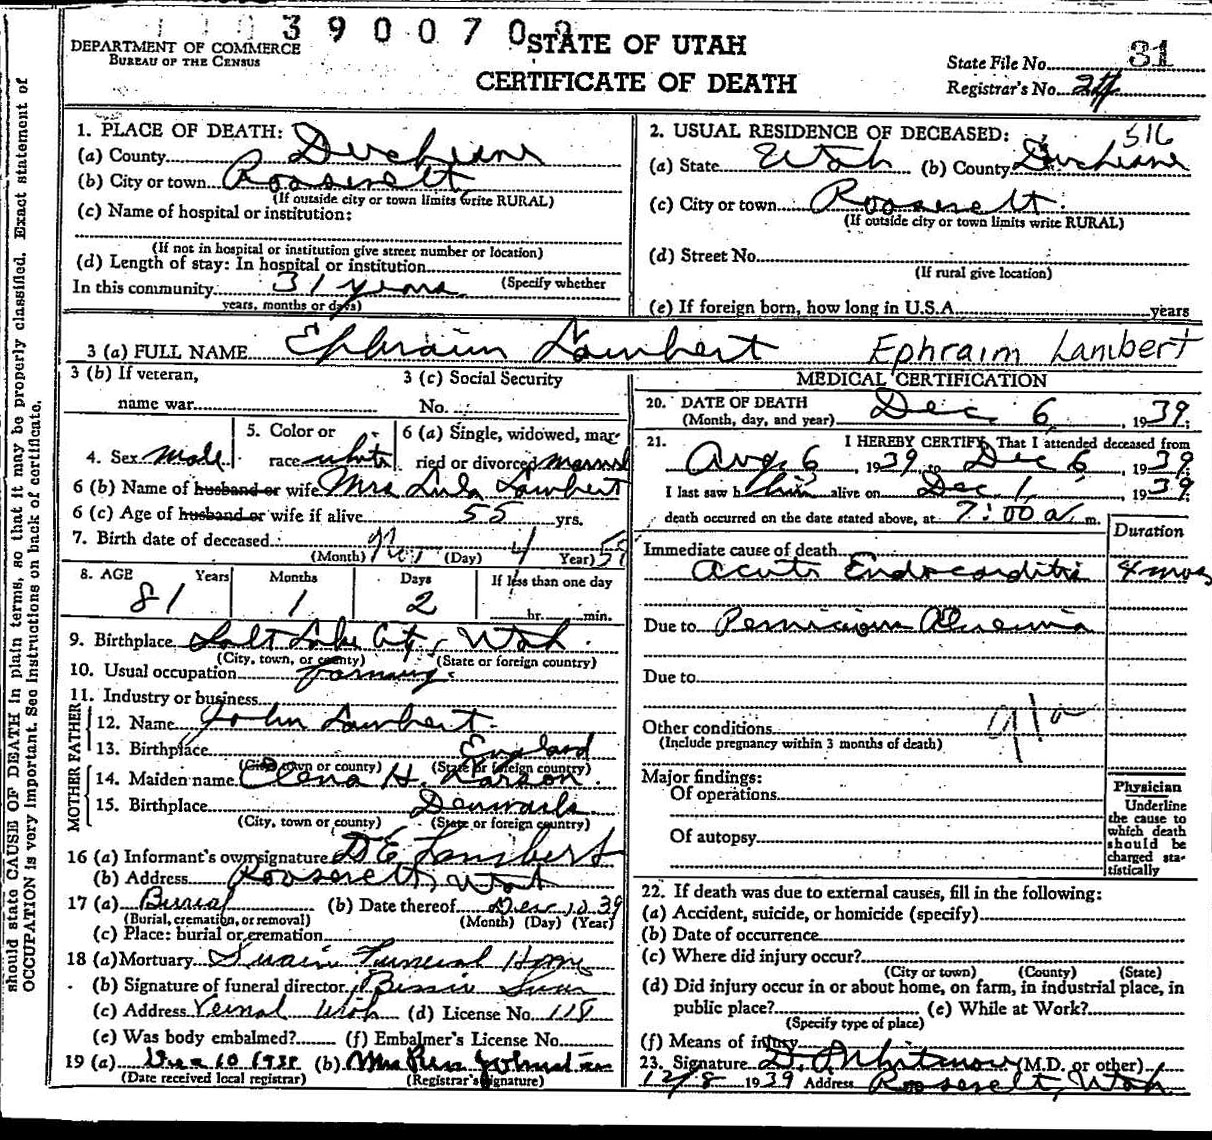 390070
STATE OF UTAH
CERTIFICATE OF DEATH
DEPARTMENT OF COMMERCE
BUREAU OF THE CENSUS
State File No. 31
Registrar's No.
should state CAUSE OF DEATH in plain terms, so that it may be properly classified. Exact statement of
OCCUPATION is very important. See instructions on back of certificate.
1. PLACE OF DEATH:
(a) County Duchesne
(b) City or town Roosevelt
(If outside city or town limits write RURAL)
(c) Name of hospital or institution:
(If not in hospital or institution give street number or location)
(d) Length of stay: In hospital or institution
In this community 31 years (Specify whether
years, months or days)
2. USUAL RESIDENCE OF DECEASED: 516
(a) State Utah (b) County Duchesne
(c) City or town Roosevelt
(If outside city or town limits write RURAL)
(d) Street No.
(If rural give location)
(e) If foreign born, how long in U.S.A. years
3 (a) FULL NAME Ephraim Lambert Ephraim Lambert
3 (b) If veteran,
name war
3 (c) Social Security
No.
4. Sex Male
5. Color or
race white
6 (a) Single, widowed, mar-
ried or divorced married
6 (b) Name of husband or wife Mrs Lula Lambert
6 (c) Age of husband or wife if alive 55 yrs.
7. Birth date of deceased Nov 4
(Month) (Day) Year)
8. AGE Years Months Days If less than one day
81 1 2 hr. min.
9. Birthplace Salt Lake City, Utah
(City, town, or county) (State or foreign country)
10. Usual occupation farming
11. Industry or business
FATHER
12. Name John Lambert
13. Birthplace England
(City, town or county) (State or foreign country)
MOTHER
14. Maiden name Elena H. Larson
15. Birthplace Denmark
(City, town or county) (State or foreign country)
16 (a) Informant's own signature D E Lambert
(b) Address Roosevelt, Utah
17 (a) Burial (b) Date thereof Dec 10 39
(Burial, cremation, or removal) (Month) (Day) (Year)
(c) Place: burial or cremation
18 (a) Mortuary Swain Funeral Home
(b) Signature of funeral director Bessie Swain
(c) Address Vernal Utah (d) License No. 118
(e) Was body embalmed? (f) Embalmer's License No.
19 (a) Dec 10 (b) Mrs Johnston
(Date received local registrar) (Registrar's signature)
MEDICAL CERTIFICATION
20. DATE OF DEATH
(Month, day, and year) Dec 6, 1939
21. I HEREBY CERTIFY, That I attended deceased from
Aug 6, 1939, to Dec 6, 1939
I last saw him alive on Dec 1, 1939
death occurred on the date stated above, at 7:00 a. m.
Duration
Immediate cause of death
Acute Endocarditis 4 mos
Due to Pernicious Anemia
Due to
Other conditions
(Include pregnancy within 3 months of death)
Major findings:
Of operations
Of autopsy
Physician
Underline
the cause to
which death
should be
charged sta-
tistically
22. If death was due to external causes, fill in the following:
(a) Accident, suicide, or homicide (specify)
(b) Date of occurrence
(c) Where did injury occur?
(City or town) (County) (State)
(d) Did injury occur in or about home, on farm, in industrial place, in
public place? (e) While at Work?
(Specify type of place)
(f) Means of injury
23. Signature (M.D. or other)
12/8 1939 Address Roosevelt, Utah